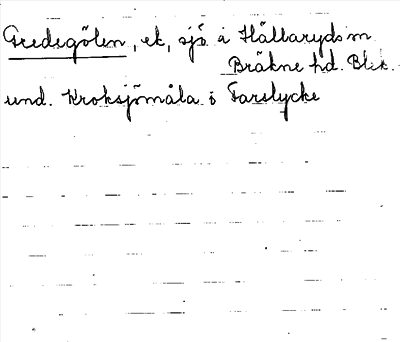 Gredsgölen, ek, sjö å Hällaryds sn
Bräkne hd. Blek.
und. Kroksjömåla i Farslycke